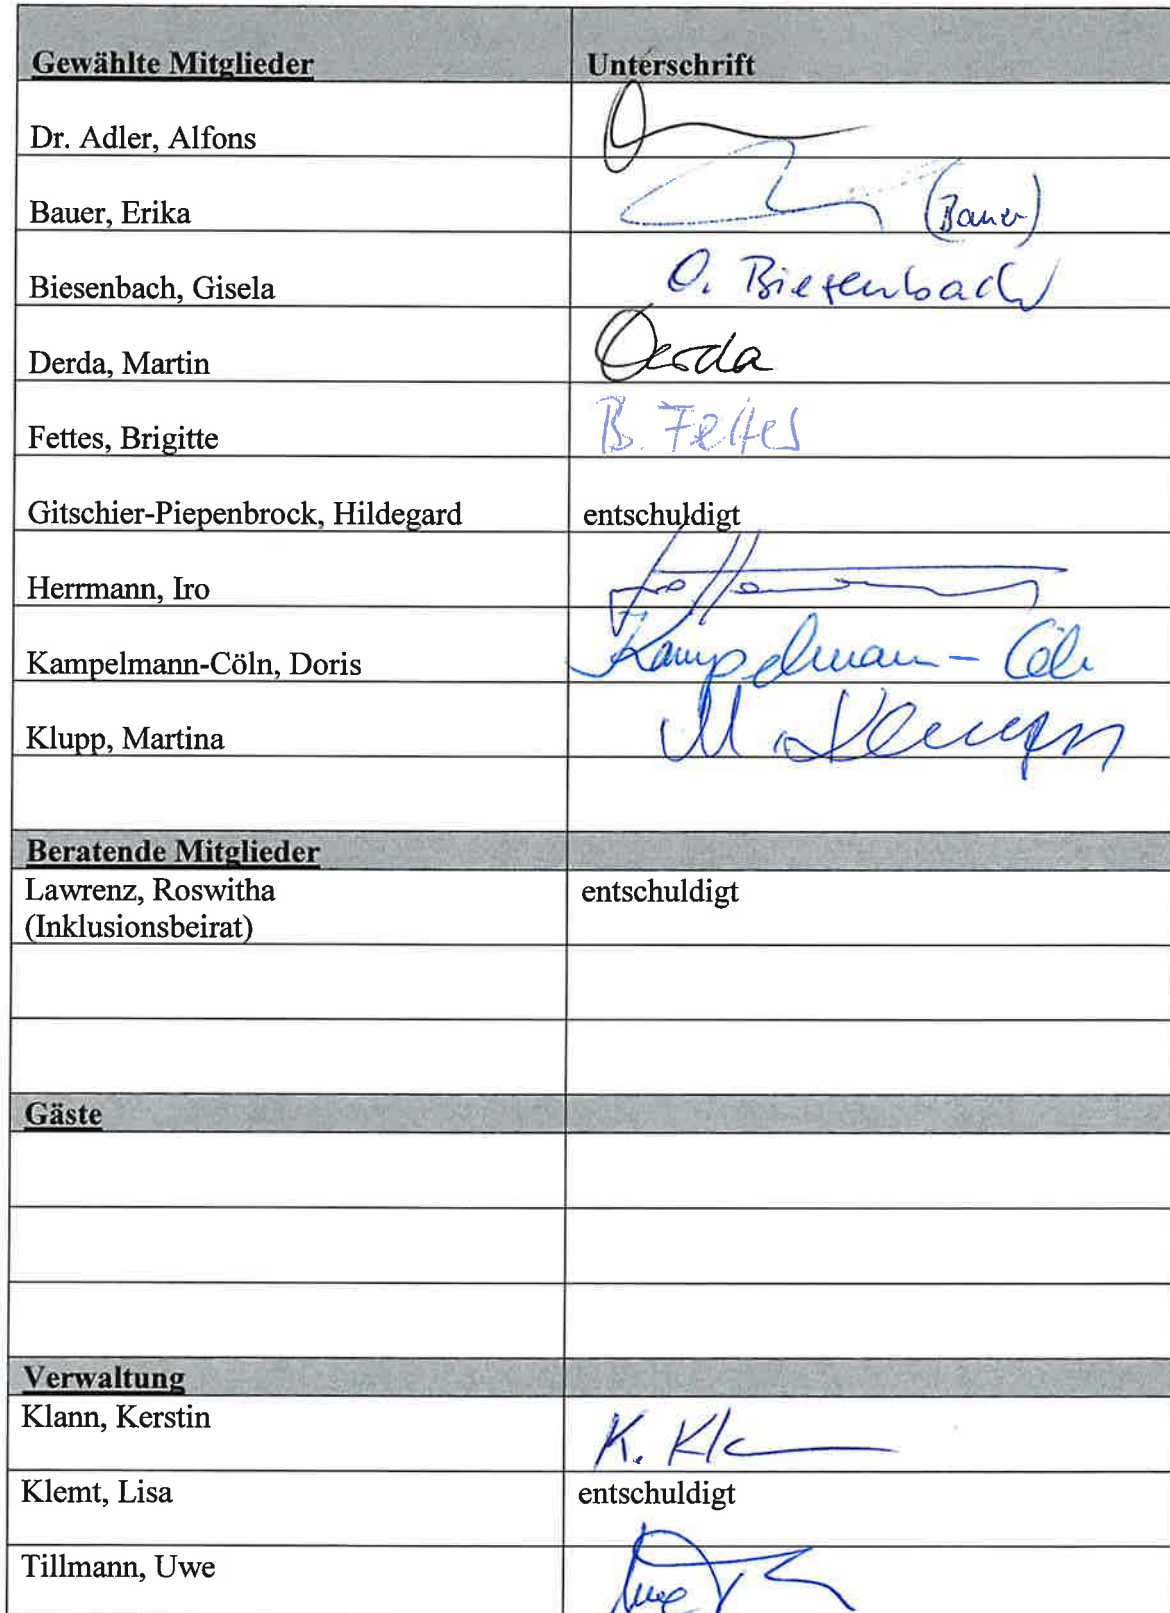 Gewählte Mitglieder Unterschrift
Dr. Adler, Alfons
Bauer, Erika (Bauer)
Biesenbach, Gisela G. Biesenbach
Derda, Martin Derda
Fettes, Brigitte B. Fettes
Gitschier-Piepenbrock, Hildegard entschuldigt
Herrmann, Iro
Kampelmann-Cöln, Doris Kampelmann-Cöln
Klupp, Martina M. Klupp
Beratende Mitglieder
Lawrenz, Roswitha entschuldigt
(Inklusionsbeirat)
Gäste
Verwaltung
Klann, Kerstin K. Kl
Klemt, Lisa entschuldigt
Tillmann, Uwe Uwe